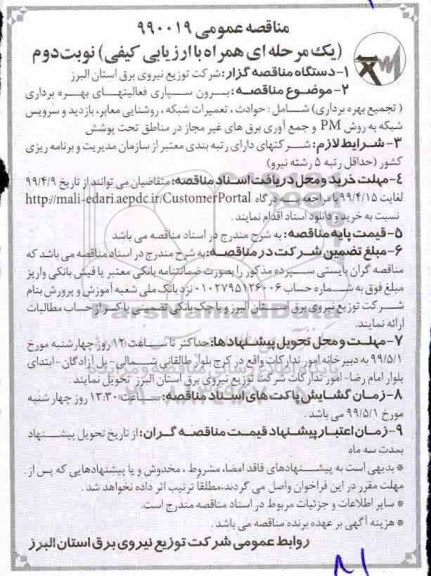 مناقصه عمومی ۹۹۰۰۱۹
(یک مرحله ای همراه با ارزیابی کیفی) نوبت دوم
۱- دستگاه مناقصه گزار: شرکت توزیع نیروی برق استان البرز
۲- موضوع مناقصه: برون سپاری فعالیتهای بهره برداری
(تجمیع بهره برداری) شامل: حوادث، تعمیرات شبکه، روشنایی معابر، بازدید و سرویس
شبکه به روش PM و جمع آوری برق های غیر مجاز در مناطق تحت پوشش
۳- شرایط لازم: شرکتهای دارای رتبه بندی معتبر از سازمان مدیریت و برنامه ریزی
کشور (حداقل رتبه ۵ رشته نیرو)
۴- مهلت خرید و محل دریافت اسناد مناقصه: متقاضیان می توانند از تاریخ ۹۹/۴/۹
لغایت ۹۹/۴/۱۵ با مراجعه به درگاه http://mali-edari.aepdc.ir/CustomerPortal
نسبت به خرید و دانلود اسناد اقدام نمایند.
۵- قیمت پایه مناقصه: به شرح مندرج در اسناد مناقصه می باشد
۶- مبلغ تضمین شرکت در مناقصه: به شرح مندرج در اسناد مناقصه می باشد که
مناقصه گران بایستی سپرده مذکور را بصورت ضمانتنامه بانکی معتبر یا فیش بانکی واریز
مبلغ فوق به شماره حساب ۰۱۰۲۷۹۵۱۲۶۰۰۶ نزد بانک ملی شعبه آموزش و پرورش بنام
شرکت توزیع نیروی برق استان البرز و یا چک بانکی تضمینی یا کسر از صاحب مطالبات
ارائه نمایند.
۷- مهلت و محل تحویل پیشنهادها: حداکثر تا ساعت ۱۲ روز چهارشنبه مورخ
۹۹/۵/۱ به دبیرخانه امور تدارکات واقع در کرج بلوار طالقانی شمالی - پل آزادگان - ابتدای
بلوار امام رضا - امور تدارکات شرکت توزیع نیروی برق استان البرز تحویل نمایند.
۸- زمان گشایش پاکت های اسناد مناقصه: ساعت ۱۳:۳۰ روز چهارشنبه
مورخ ۹۹/۵/۱ می باشد.
۹- زمان اعتبار پیشنهاد قیمت مناقصه گران: از تاریخ تحویل پیشنهاد
بمدت سه ماه
* بدیهی است به پیشنهادهای فاقد امضاء، مشروط، مخدوش و یا پیشنهادهایی که پس از
مهلت مقرر در این فراخوان واصل می گردند، مطلقا ترتیب اثر داده نخواهد شد.
* سایر اطلاعات و جزئیات مربوط در اسناد مناقصه مندرج است.
* هزینه آگهی بر عهده برنده مناقصه می باشد.
روابط عمومی شرکت توزیع نیروی برق استان البرز